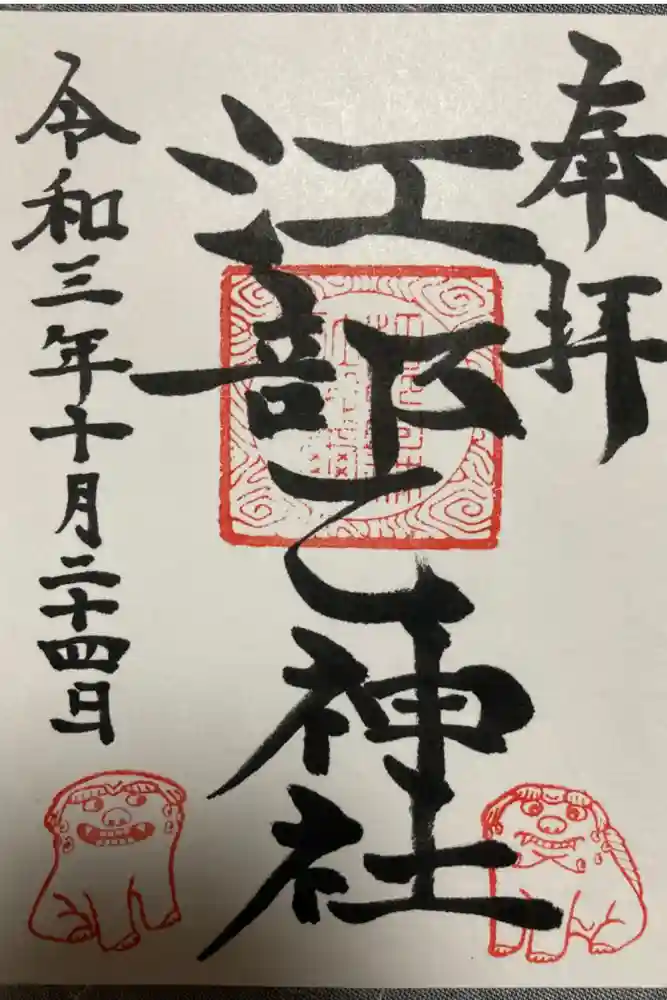 奉拝
江部乙神社
令和三年十月二十四日